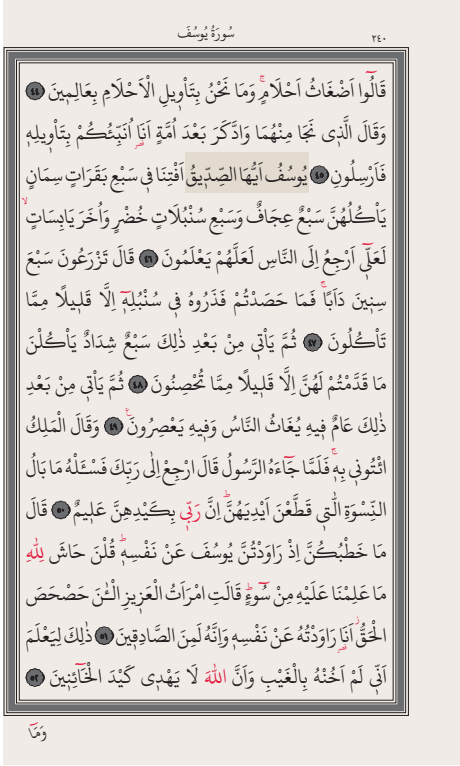 سُورَةُ يُوسُفَ
٢٤٠
قَالُٓوا اَضْغَاثُ اَحْلَامٍۚ وَمَا نَحْنُ بِتَأْوِيلِ الْاَحْلَامِ بِعَالِمِينَ ٤٤
وَقَالَ الَّذِى نَجَا مِنْهُمَا وَادَّكَرَ بَعْدَ اُمَّةٍ اَنَا۬ اُنَبِّئُكُمْ بِتَأْوِيلِهِ
فَاَرْسِلُونِ ٤٥ يُوسُفُ اَيُّهَا الصِّدِّيقُ اَفْتِنَا فِى سَبْعِ بَقَرَاتٍ سِمَانٍ
يَأْكُلُهُنَّ سَبْعٌ عِجَافٌ وَسَبْعِ سُنْبُلَاتٍ خُضْرٍ وَاُخَرَ يَابِسَاتٍۙ
لَعَلِّٓى اَرْجِعُ اِلَى النَّاسِ لَعَلَّهُمْ يَعْلَمُونَ ٤٦ قَالَ تَزْرَعُونَ سَبْعَ
سِنِينَ دَاَبًاۚ فَمَا حَصَدْتُمْ فَذَرُوهُ فِى سُنْبُلِهِٓ اِلَّا قَلِيلًا مِمَّا
تَأْكُلُونَ ٤٧ ثُمَّ يَأْتِى مِنْ بَعْدِ ذٰلِكَ سَبْعٌ شِدَادٌ يَأْكُلْنَ
مَا قَدَّمْتُمْ لَهُنَّ اِلَّا قَلِيلًا مِمَّا تُحْصِنُونَ ٤٨ ثُمَّ يَأْتِى مِنْ بَعْدِ
ذٰلِكَ عَامٌ فِيهِ يُغَاثُ النَّاسُ وَفِيهِ يَعْصِرُونَ۟ ٤٩ وَقَالَ الْمَلِكُ
ائْتُونِى بِهِۚ فَلَمَّا جَٓاءَهُ الرَّسُولُ قَالَ ارْجِعْ اِلٰى رَبِّكَ فَسْـَٔلْهُ مَا بَالُ
النِّسْوَةِ الّٰتِى قَطَّعْنَ اَيْدِيَهُنَّۜ اِنَّ رَبِّى بِكَيْدِهِنَّ عَلِيمٌ ٥٠ قَالَ
مَا خَطْبُكُنَّ اِذْ رَاوَدْتُنَّ يُوسُفَ عَنْ نَفْسِهِۜ قُلْنَ حَاشَ لِلّٰهِ
مَا عَلِمْنَا عَلَيْهِ مِنْ سُٓوءٍۜ قَالَتِ امْرَاَتُ الْعَزِيزِ الْـٰٔنَ حَصْحَصَ
الْحَقُّۘ اَنَا۬ رَاوَدْتُهُ عَنْ نَفْسِهِ وَاِنَّهُ لَمِنَ الصَّادِقِينَ ٥١ ذٰلِكَ لِيَعْلَمَ
اَنِّى لَمْ اَخُنْهُ بِالْغَيْبِ وَاَنَّ اللّٰهَ لَا يَهْدِى كَيْدَ الْخَٓائِنِينَ ٥٢
وَمَٓا